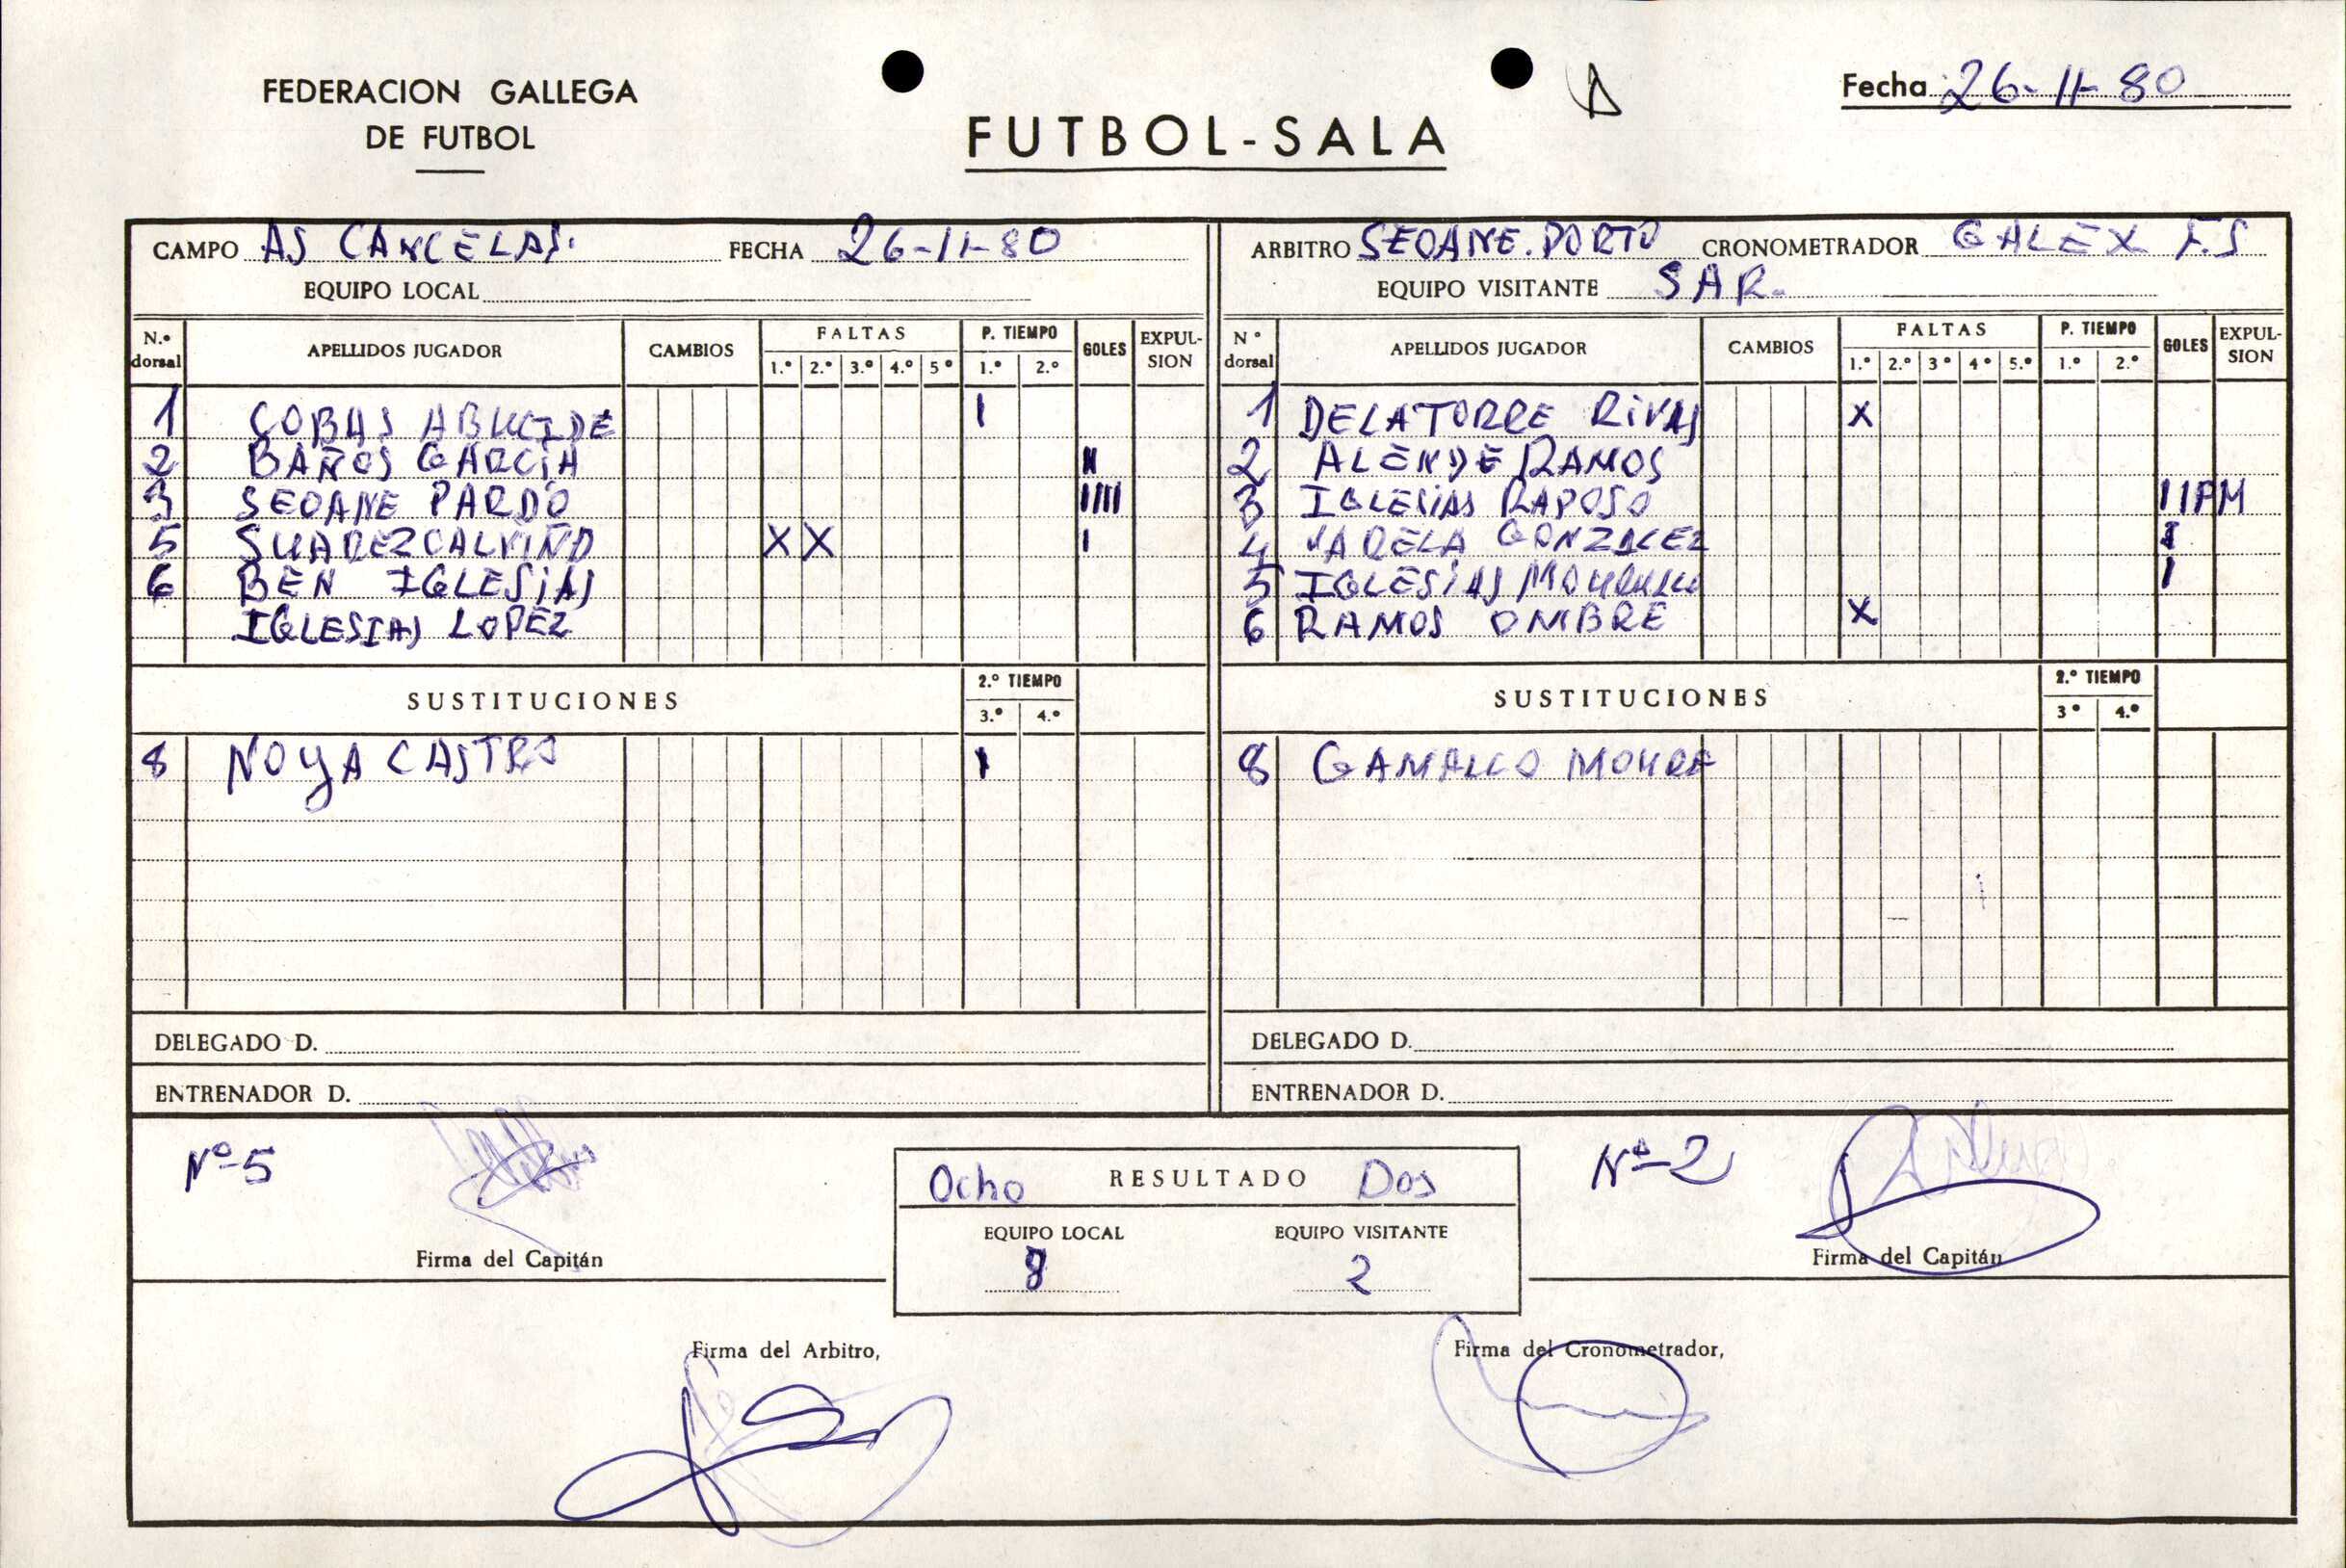 FEDERACION GALLEGA
DE FUTBOL
FUTBOL-SALA
Fecha 26-11-80
CAMPO AS CANCELAS. FECHA 26-11-80
EQUIPO LOCAL
ARBITRO SEOANE. PORTO CRONOMETRADOR GALEX F.S
EQUIPO VISITANTE SAR.
N.º dorsal APELLIDOS JUGADOR CAMBIOS FALTAS 1.º 2.º 3.º 4.º 5º P. TIEMPO 1.º 2.º GOLES EXPUL-SION
1 COBAS I
2 BAÑOS GARCIA II
3 SEOANE PARDO IIII
5 SUAREZ CALVIÑO X X I
6 BEN IGLESIAS
IGLESIAS LOPEZ
SUSTITUCIONES 2.º TIEMPO 3.º 4.º
8 NOYA CASTRO I
DELEGADO D.
ENTRENADOR D.
N º dorsal APELLIDOS JUGADOR CAMBIOS FALTAS 1.º 2.º 3º 4º 5.º P. TIEMPO 1.º 2.º GOLES EXPUL-SION
1 DELATORRE RIVAS X
2 ALENDE RAMOS
3 IGLESIAS RAPOSO IIPM
4 VARELA GONZALEZ I
5 IGLESIAS I
6 RAMOS OMBRE X
SUSTITUCIONES 2.º TIEMPO 3º 4.º
8 GAMALLO MOURE
DELEGADO D.
ENTRENADOR D.
Nº-5
Firma del Capitán
Ocho RESULTADO Dos
EQUIPO LOCAL EQUIPO VISITANTE
8 2
Nº-2
Firma del Capitán
Firma del Arbitro,
Firma del Cronometrador,